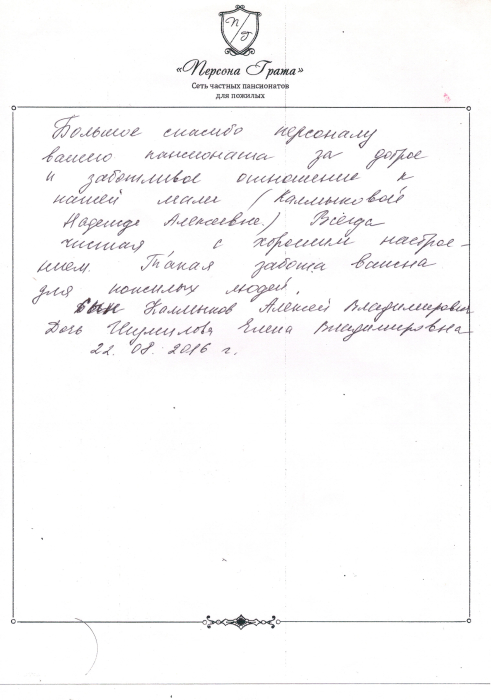 П/Г
«Персона Грата»
Сеть частных пансионатов
для пожилых
Большое спасибо персоналу
вашего пансионата за доброе
и заботливое отношение к
нашей маме (Калмыковой
Надежде Алексеевне.) Всегда
чистая с хорошим настрое-
нием. Такая забота важна
для пожилых людей.
сын Калмыков Алексей Владимирович
Дочь Шумилова Елена Владимировна
22. 08. 2016 г.